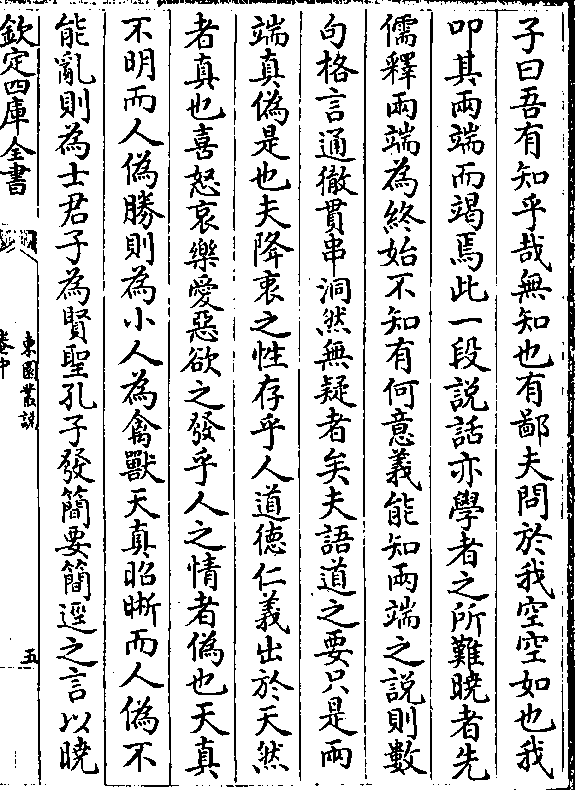 子曰吾有知乎哉無知也有鄙夫問於我空空如也我
叩其兩端而竭焉此一段說話亦學者之所難曉者先
儒釋兩端為終始不知有何意義能知兩端之說則數
句格言通徹貫串洞然無疑者矣夫語道之要只是兩
端真偽是也夫降衷之性存乎人道徳仁義出於天然
者真也喜怒哀樂愛惡欲之發乎人之情者偽也天真
不明而人偽勝則為小人為禽獸天真昭晰而人偽不
能亂則為士君子為賢聖孔子發簡要簡逕之言以曉
欽定四庫全書
東園叢說
卷中
五